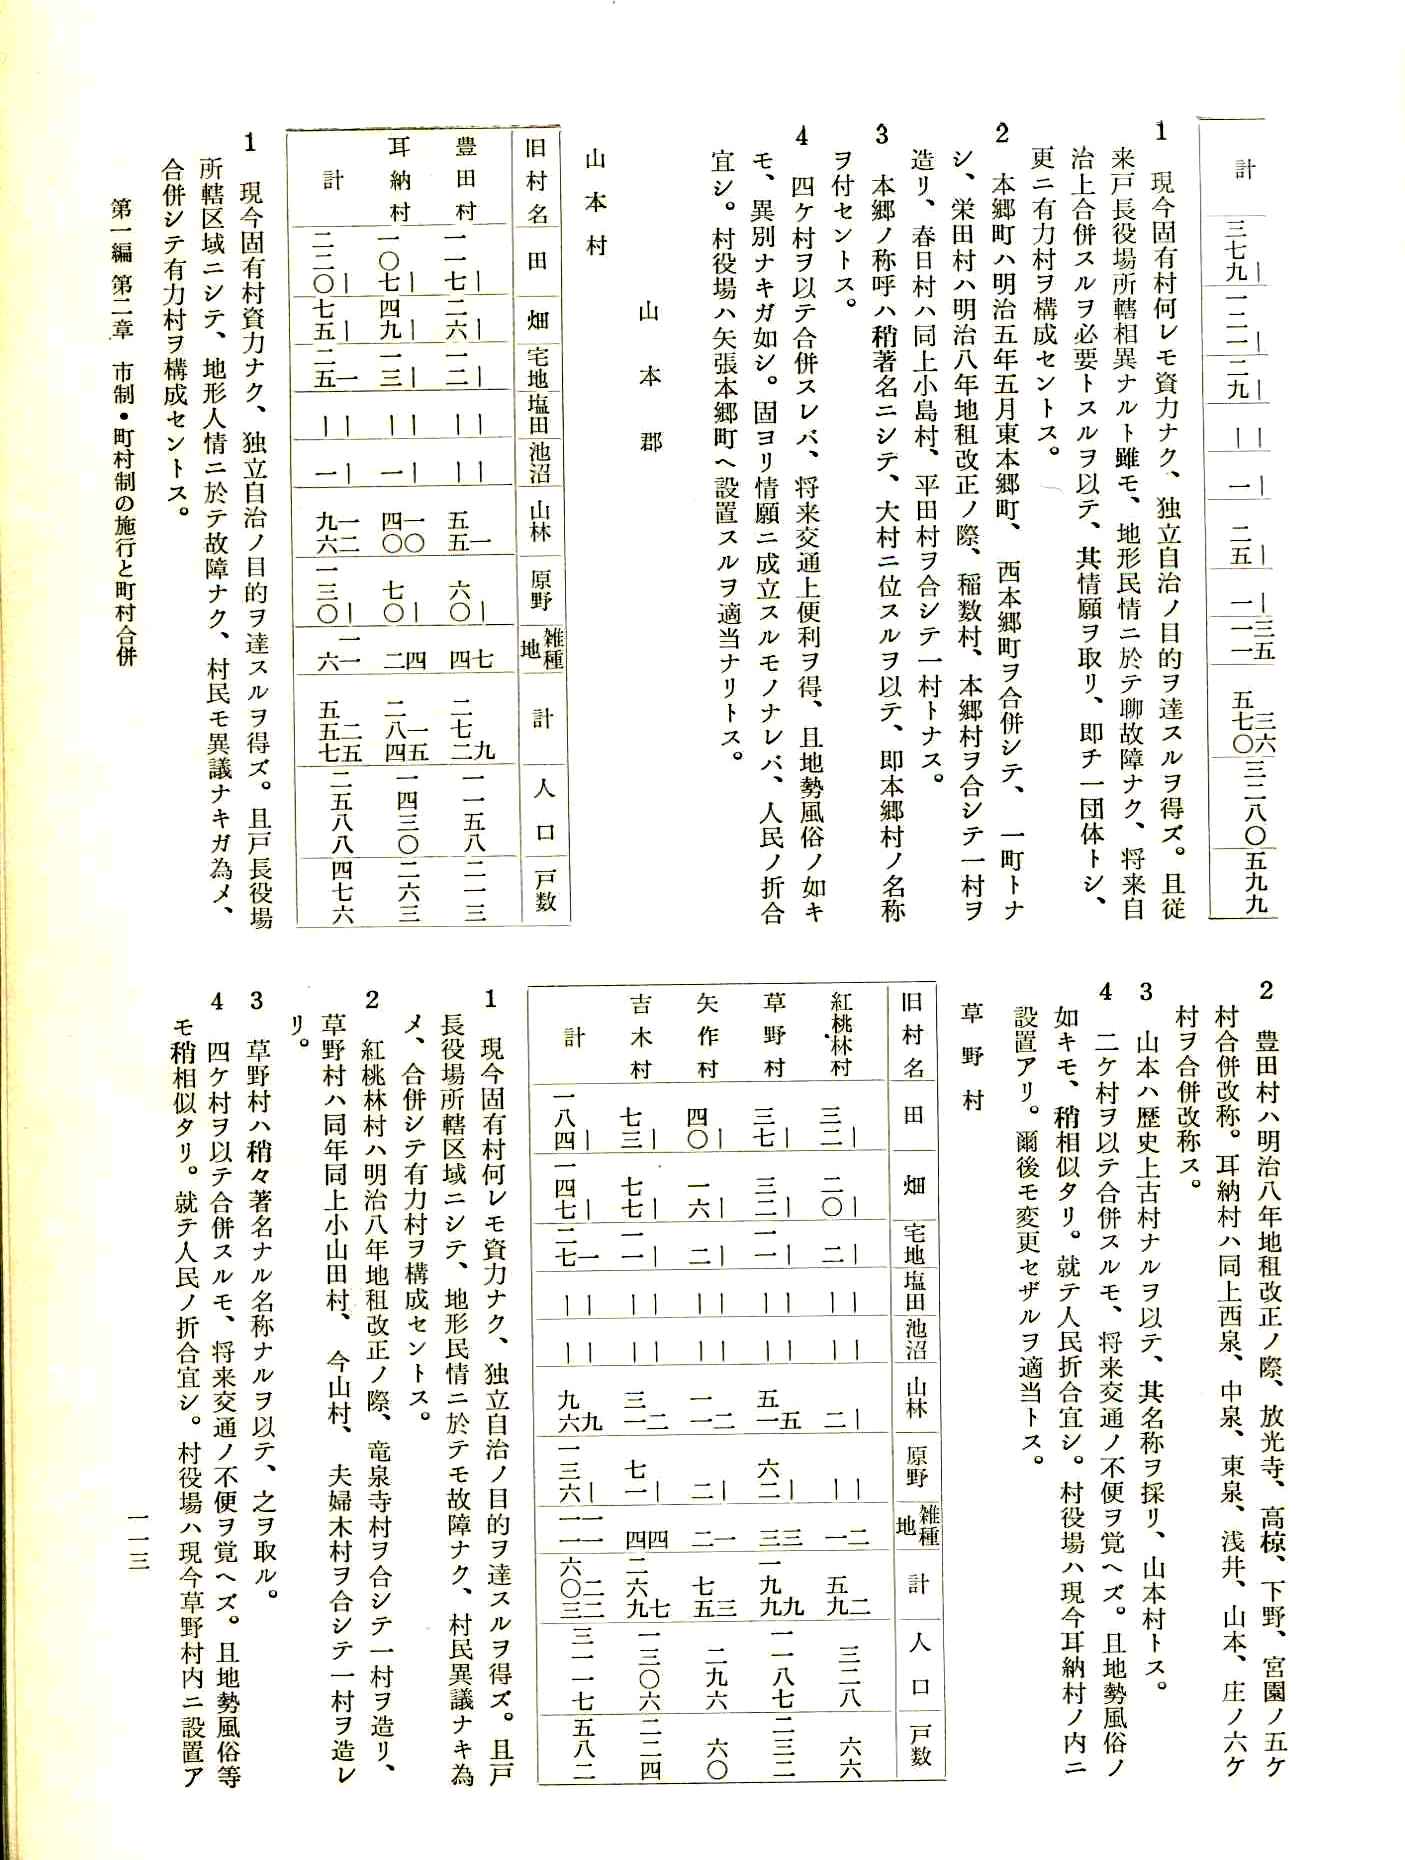 計 三七九｜ 一二一｜ 二九｜ ｜｜ 一｜ 二五｜ 一｜ 一一三五 五七〇三六 三二八〇 五九九
1 現今固有村何レモ資力ナク、独立自治ノ目的ヲ達スルヲ得ズ。且従
来戸長役場所轄相異ナルト雖モ、地形民情ニ於テ聊故障ナク、将来自
治上合併スルヲ必要トスルヲ以テ、其情願ヲ取リ、即チ一団体トシ、
更ニ有力村ヲ構成セントス。
2 本郷町ハ明治五年五月東本郷町、西本郷町ヲ合併シテ、一町トナ
シ、栄田村ハ明治八年地租改正ノ際、稲数村、本郷村ヲ合シテ一村ヲ
造リ、春日村ハ同上小島村、平田村ヲ合シテ一村トナス。
3 本郷ノ称呼ハ稍著名ニシテ、大村ニ位スルヲ以テ、即本郷村ノ名称
ヲ付セントス。
4 四ケ村ヲ以テ合併スレバ、将来交通上便利ヲ得、且地勢風俗ノ如キ
モ、異別ナキガ如シ。固ヨリ情願ニ成立スルモノナレバ、人民ノ折合
宜シ。村役場ハ矢張本郷町ヘ設置スルヲ適当ナリトス。
山本郡
山本村
旧村名 田 畑 宅地 塩田 池沼 山林 原野 雑種地 計 人口 戸数
豊田村 一一七｜ 二六｜ 一二｜ ｜｜ ｜｜ 五五一 六〇｜ 四七 二七二九 一一五八 二一三
耳納村 一〇七｜ 四九｜ 一三｜ ｜｜ 一｜ 四〇一〇 七〇｜ 二四 二八四一五 一四三〇 二六三
計 二二〇｜ 七五｜ 二五一 ｜｜ 一｜ 九六一二 一三〇｜ 六一一 五五七二五 二五八八 四七六
1 現今固有村資力ナク、独立自治ノ目的ヲ達スルヲ得ズ。且戸長役場
所轄区域ニシテ、地形人情ニ於テ故障ナク、村民モ異議ナキガ為メ、
合併シテ有力村ヲ構成セントス。
2 豊田村ハ明治八年地租改正ノ際、放光寺、高椋、下野、宮園ノ五ケ
村合併改称。耳納村ハ同上西泉、中泉、東泉、浅井、山本、庄ノ六ケ
村ヲ合併改称ス。
3 山本ハ歴史上古村ナルヲ以テ、其名称ヲ採リ、山本村トス。
4 二ケ村ヲ以テ合併スルモ、将来交通ノ不便ヲ覚ヘズ。且地勢風俗ノ
如キモ、稍相似タリ。就テ人民折合宜シ。村役場ハ現今耳納村ノ内ニ
設置アリ。爾後モ変更セザルヲ適当トス。
草野村
旧村名 田 畑 宅地 塩田 池沼 山林 原野 雑種地 計 人口 戸数
紅桃林村 三二｜ 二〇｜ 二｜ ｜｜ ｜｜ 二｜ ｜｜ 一二 五九二 三二八 六六
草野村 三七｜ 三二｜ 一一｜ ｜｜ ｜｜ 五一五 六二｜ 三三 一九九九 一一八七 二三二
矢作村 四〇｜ 一六｜ 二｜ ｜｜ ｜｜ 一一二 二｜ 二一 七五三 二九六 六〇
吉木村 七三｜ 七七｜ 一一｜ ｜｜ ｜｜ 三一二 七一｜ 四四 二六九七 一三〇六 二二四
計 一八四｜ 一四七｜ 二七一 ｜｜ ｜｜ 九六九 一三六｜ 一一一一 六〇三二二 三一一七 五八二
1 現今固有村何レモ資力ナク、独立自治ノ目的ヲ達スルヲ得ズ。且戸
長役場所轄区域ニシテ、地形民情ニ於テモ故障ナク、村民異議ナキ為
メ、合併シテ有力村ヲ構成セントス。
2 紅桃林村ハ明治八年地租改正ノ際、竜泉寺村ヲ合シテ一村ヲ造リ、
草野村ハ同年同上小山田村、今山村、夫婦木村ヲ合シテ一村ヲ造レ
リ。
3 草野村ハ稍々著名ナル名称ナルヲ以テ、之ヲ取ル。
4 四ケ村ヲ以テ合併スルモ、将来交通ノ不便ヲ覚ヘズ。且地勢風俗等
モ稍相似タリ。就テ人民ノ折合宜シ。村役場ハ現今草野村内ニ設置ア
第一編 第二章 市制・町村制の施行と町村合併
一一三